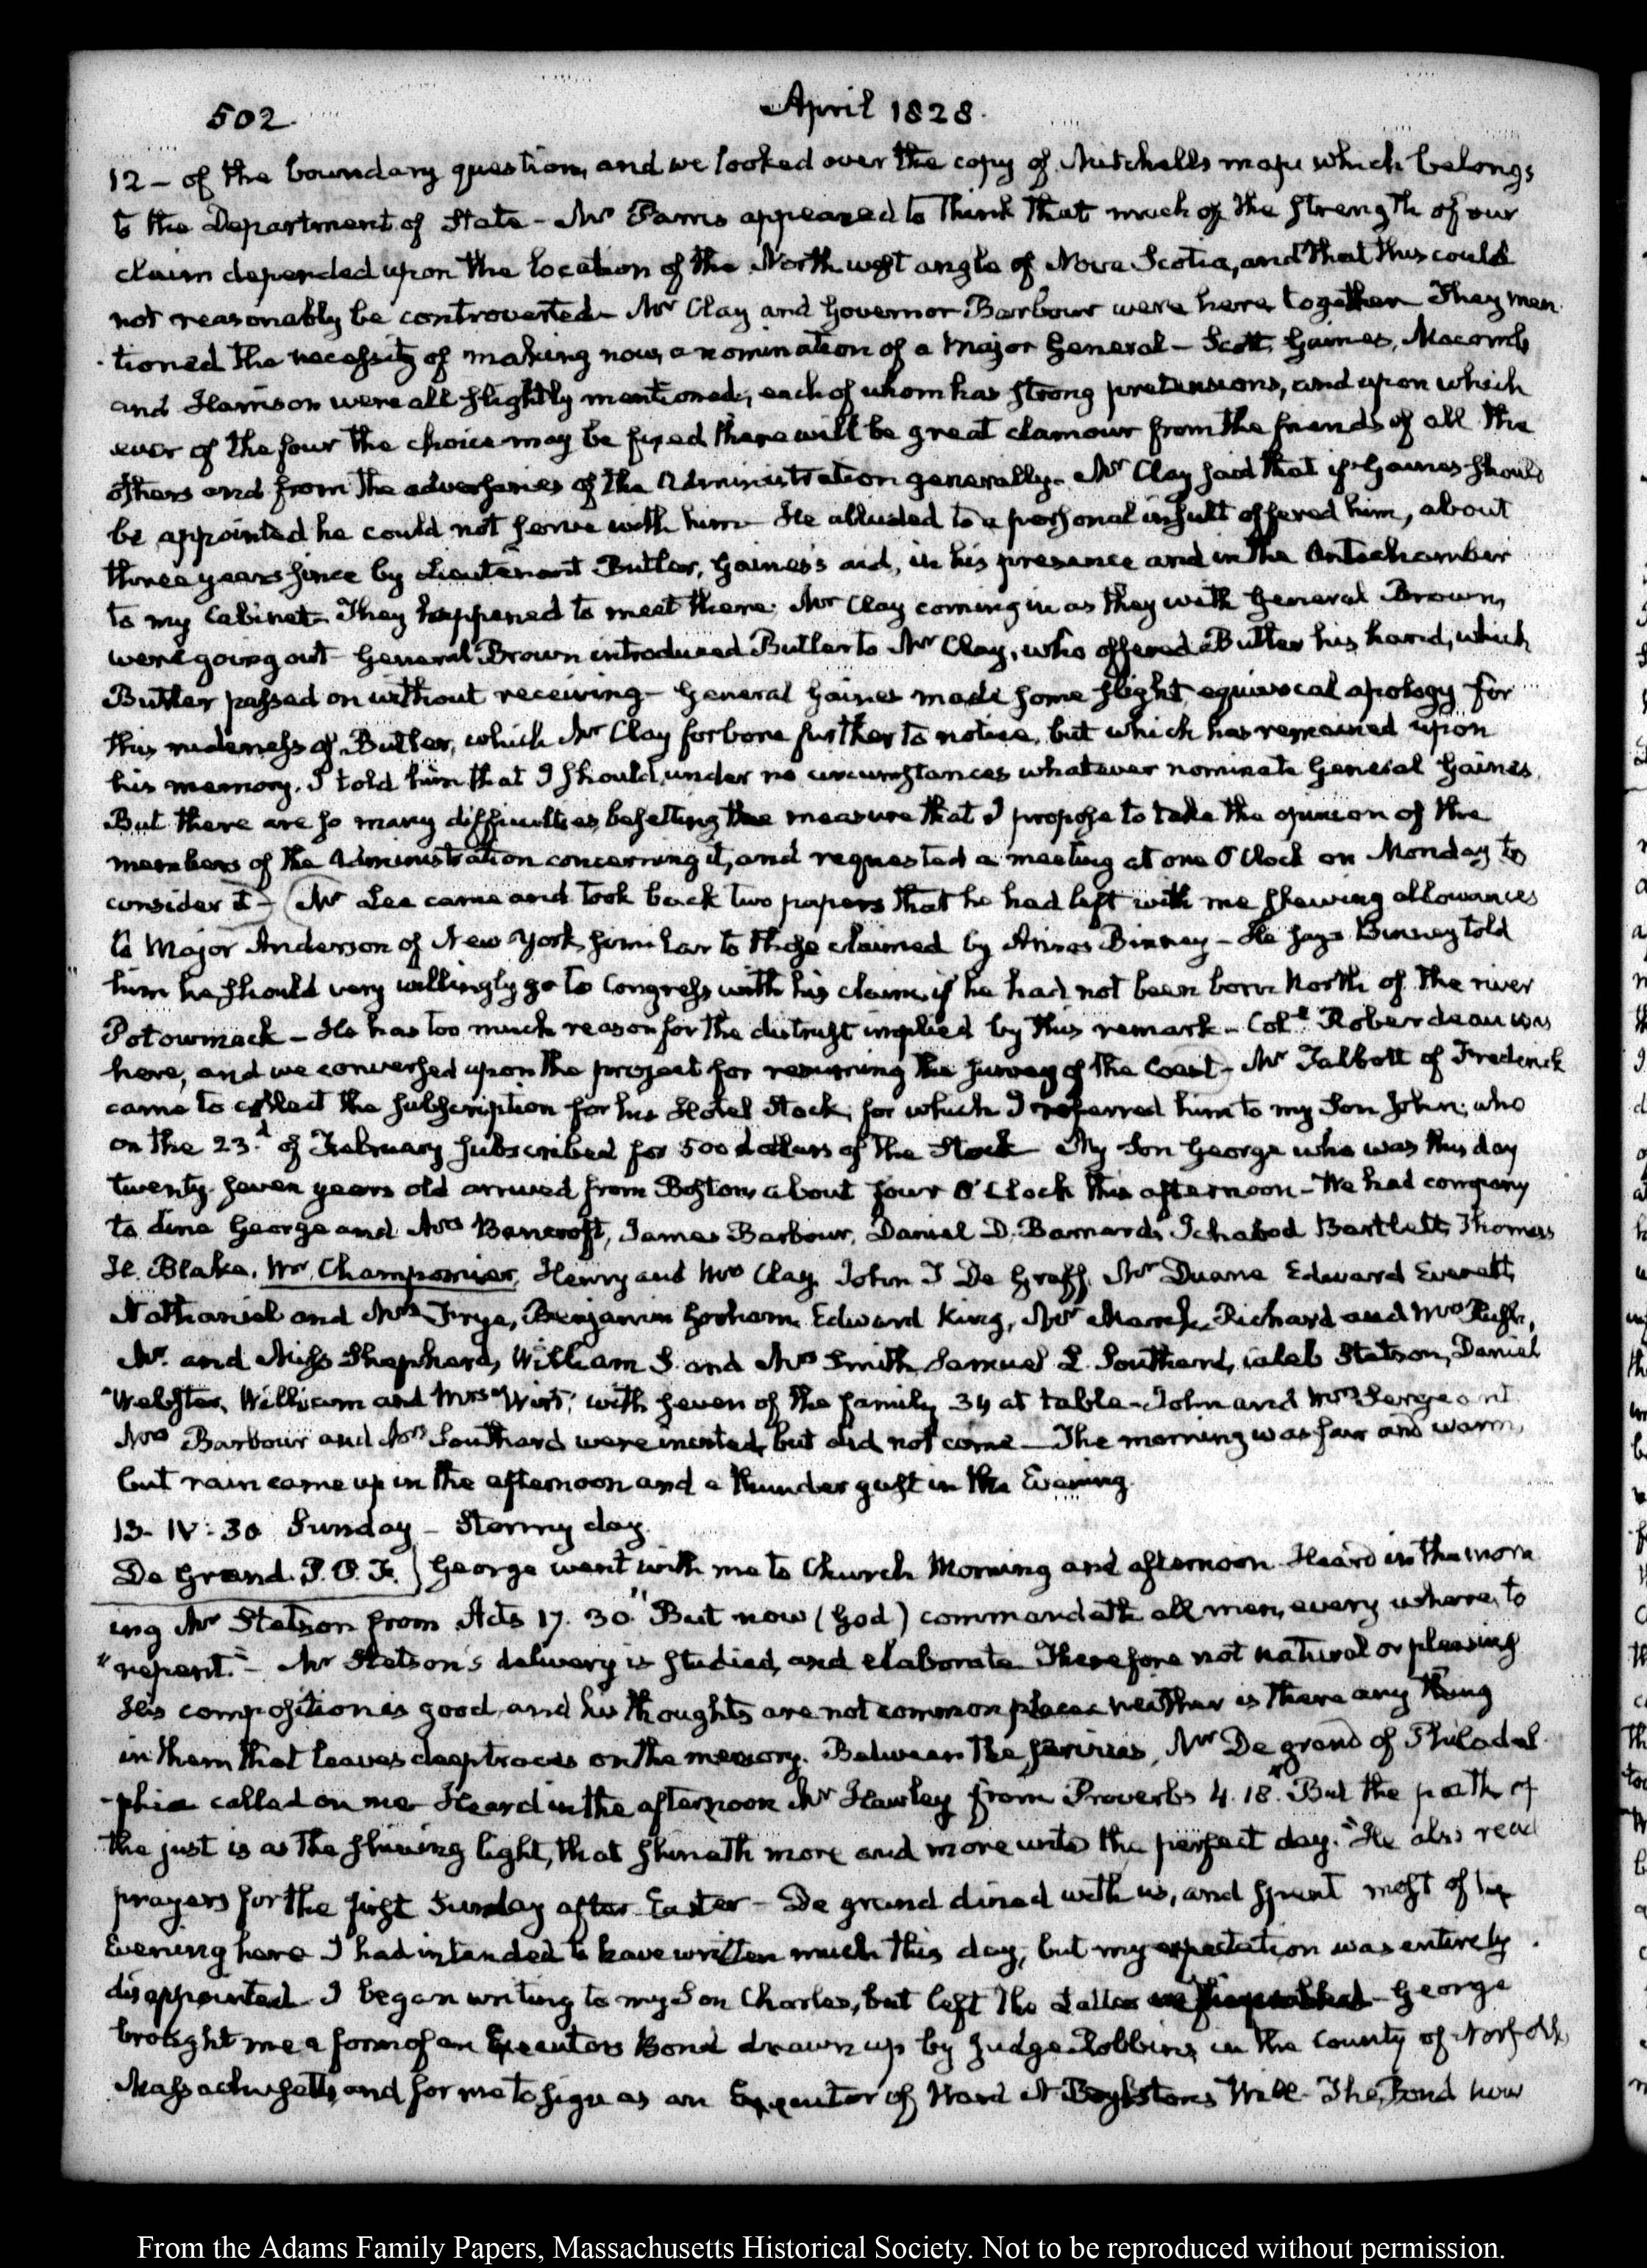 502.
April 1828.
12 – of the boundary question, and we looked over the copy of Mitchell's map which belongs
to the Department of State – Mr Parris appeared to think that much of the strength of our
claim depended upon the location of the North west angle of Nova Scotia, and that this could
not reasonably be controverted – Mr Clay and Governor Barbour were here together They men
tioned the necessity of making now, a nomination of a Major General – Scott, Gaines, Macomb
and Harrison were all slightly mentioned, each of whom has strong pretensions, and upon which
ever of the four the choice may be fixed there will be great clamour from the friends of all the
others and from the adversaries of the Administration generally – Mr Clay said that if Gaines should
be appointed he could not serve with him – He alluded to a personal insult offered him, about
three years since by Lieutenant Butler, Gaines's aid, in his presence and in the Antechamber
to my Cabinet – They happened to meet there; Mr Clay coming in as they with General Brown,
were going out – General Brown introduced Butler to Mr Clay, who offered Butler his hand, which
Butler passed on without receiving – General Gaines made some slight, equivocal apology for
this rudeness of Butler, which Mr Clay forbore further to notice, but which has remained upon
his memory. I told him that I should under no circumstances whatever nominate General Gaines.
But there are so many difficulties besetting the measure that I propose to take the opinion of the
members of the Administration concerning it, and requested a meeting at one O'Clock on Monday to
consider it – Mr Lee came and took back two papers that he had left with me shewing allowances
to Major Anderson of New York similar to those claimed by Amos Binney – He says Binney told
him he should very willingly go to Congress with his claim, if he had not been born North of the river
Potowmack – He has too much reason for the distrust implied by this remark – Coll Roberdeau was
here, and we conversed upon the project for resuming the survey of the Coast – Mr Talbott of Frederick
came to collect the subscription for his Hotel Stock, for which I referred him to my Son John; who
on the 23d of February subscribed for 500 dollars of the Stock – My Son George who was this day
twenty-seven years old arrived from Boston, about four O'Clock this afternoon – We had company
to dine George and Mrs Bancroft, James Barbour, Daniel D. Barnard, Ichabod Bartlett, Thomas
H. Blake, Mr Champomier, Henry and Mrs Clay, John I De Graff, Mr Duane Edward Everett,
Nathaniel and Mrs Frye, Benjamin Gorham, Edward King, Mr Richard and Mrs Rush,
Mr. and Miss Shephard, William S. and Mrs Smith Samuel L. Southard, Caleb Stetson, Daniel
Webster, William and Mrs Wirt, with seven of the family 34 at table – John and Mrs Sergeant
Mrs Barbour and Mrs Southard were invited, but did not come – The morning was fair and warm,
but rain came up in the afternoon and a thunder gust in the Evening.
13 – IV: 30 Sunday – Stormy day.
De Grand. P. P. F. George went with me to Church Morning and afternoon. Heard in the morn
ing Mr Stetson from Acts 17. 30. "But now (God) commandeth all men, every where, to
"repent." – Mr Stetson's delivery is studied, and elaborate Therefore not natural or pleasing
His composition is good, and his thoughts are not common place neither is there any thing
in them that leaves deep traces on the memory. Between the services, Mr De grand of Philadel
-phia called on me Heard in the afternoon Mr Hawley from Proverbs 4. 18. "But the path of
the just is as the shining light, that shineth more and more unto the perfect day." He also read
prayers for the first Sunday after Easter – De grand dined with us, and spent most of the
Evening here I had intended to have written much this day, but my expectation was entirely
disappointed. I began writing to my Son Charles, but left the Letter – George
brought me a form of an Executors Bond drawn up by Judge Robbins in the County of Norfolk
Massachusetts, and for me to sign as an Executor of Ward N Boylston's Will – The Bond how
From the Adams Family Papers, Massachusetts Historical Society. Not to be reproduced without permission.